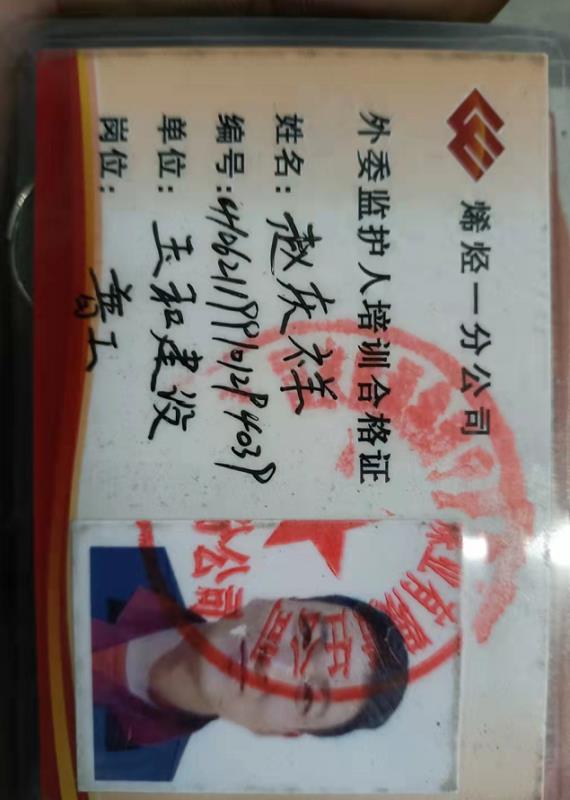 烯烃一分公司
外委监护人培训合格证
姓名：赵庆祥
编号：
单位：玉和建设
岗位：普工
分公司